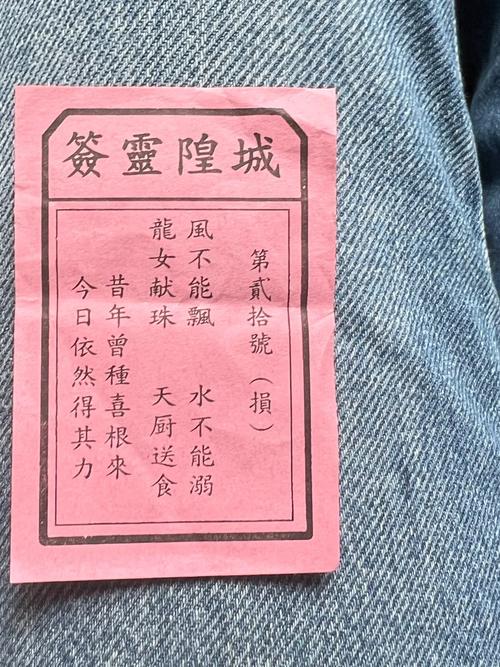 城隍靈簽
第貳拾號（損）
風不能飄　水不能溺
龍女献珠　天厨送食
昔年曾種喜根來
今日依然得其力